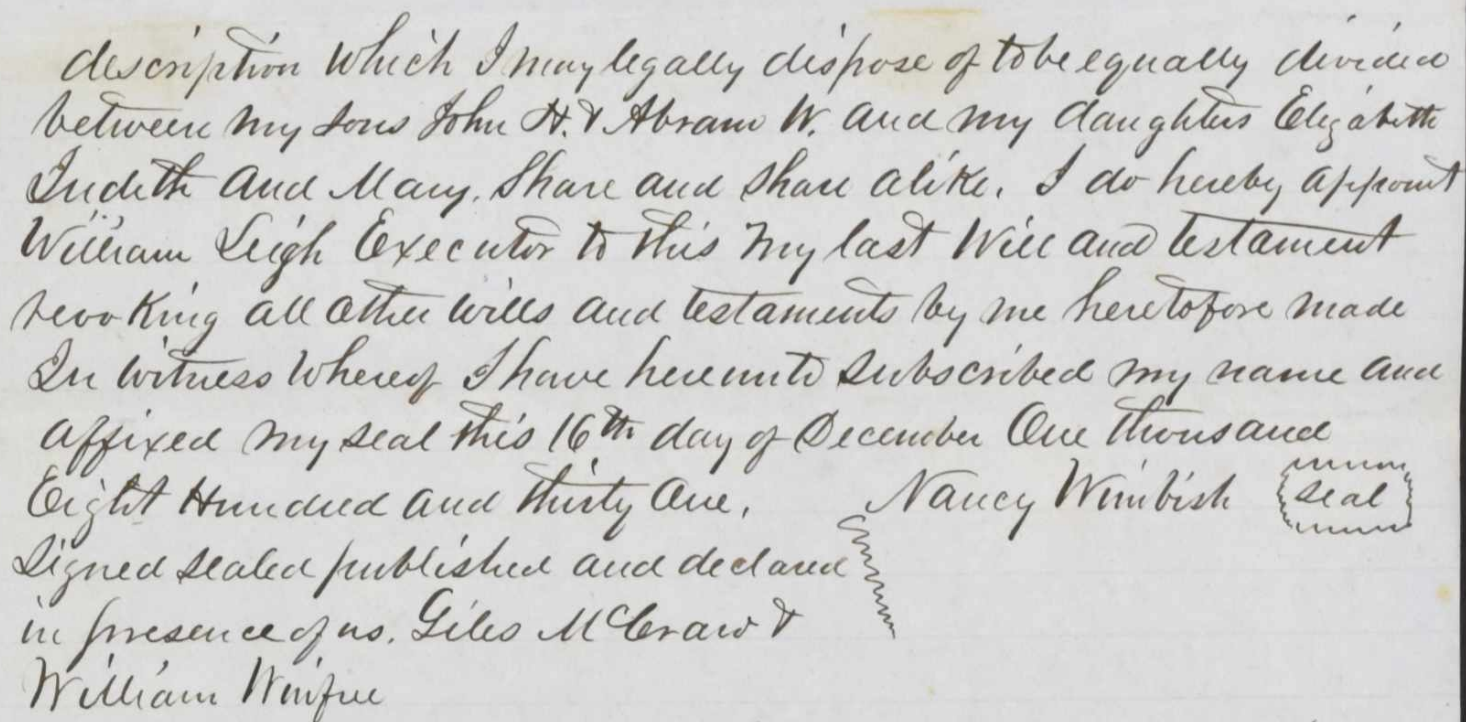 description which I may legally dispose of to be equally divided
between my sons John H. & Abram W. and my daughters Elizabeth
Judith and Mary. Share and share alike. I do hereby appoint
William Leigh Executor to this my last Will and testament
revoking all other wills and testaments by me heretofore made
In witness whereof I have hereunto subscribed my name and
affixed my seal this 16th day of December One thousand
Eight Hundred and thirty One. Nancy Wimbish seal
Signed sealed published and declared
in presence of us. Giles McCraw &
William Winfree